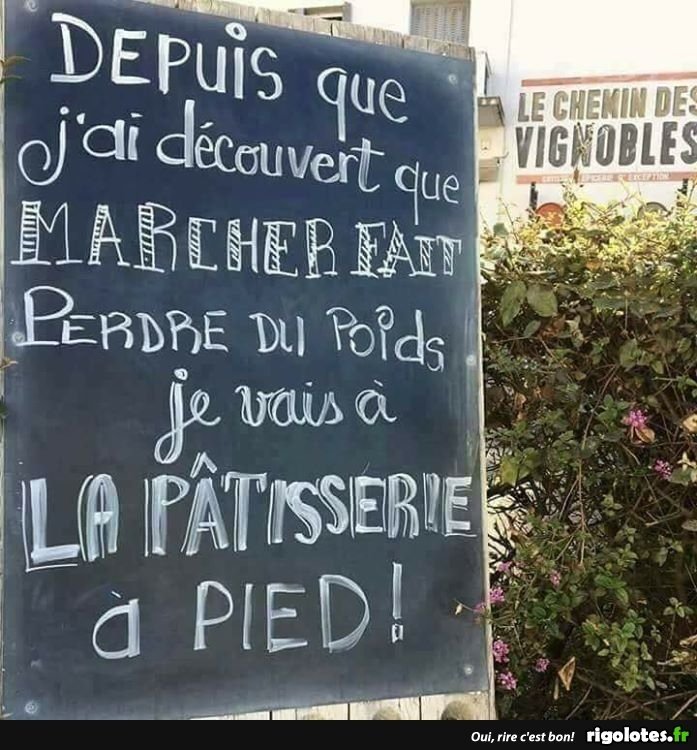 DEPUIS que
j'ai découvert que
MARCHER FAIT
PERDRE DU POIDS
je vais à
LA PÂTISSERIE
à PIED!
LE CHEMIN DES
VIGNOBLES
ÉPICERIE D'EXCEPTION
Oui, rire c'est bon! rigolotes.fr